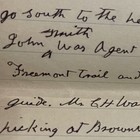 go South to the
Smith
John Was Agent
Freemont Trail and
guide. Mr E H Wa
picking at Browns